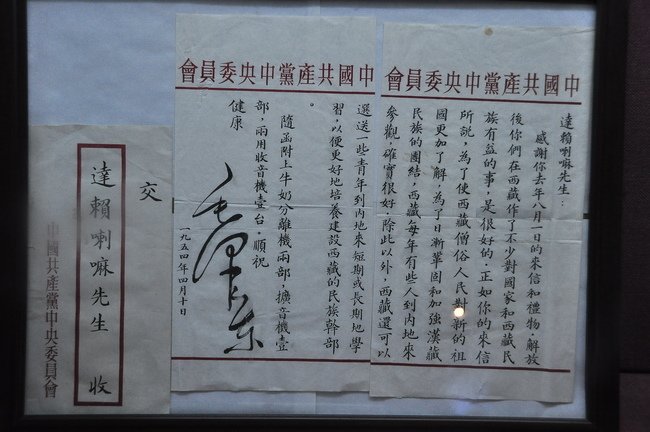 中國共產黨中央委員會
達賴喇嘛先生：
感謝你去年八月一日的來信和禮物。解放
後你們在西藏作了不少對國家和西藏民
族有益的事，是很好的。正如你的來信
所說，為了使西藏僧俗人民對新的祖
國更加了解，為了日漸鞏固和加強漢藏
民族的團結，西藏每年有些人到內地來
參觀，確實很好。除此以外，西藏還可以
中國共產黨中央委員會
選送一些青年到內地來短期或長期地學
習，以便更好地培養建設西藏的民族幹部
。
隨函附上牛奶分離機兩部，擴音機壹
部，兩用收音機壹台。順祝
健康
毛澤东
一九五四年四月十日
交
達賴喇嘛先生 收
中國共產黨中央委員會